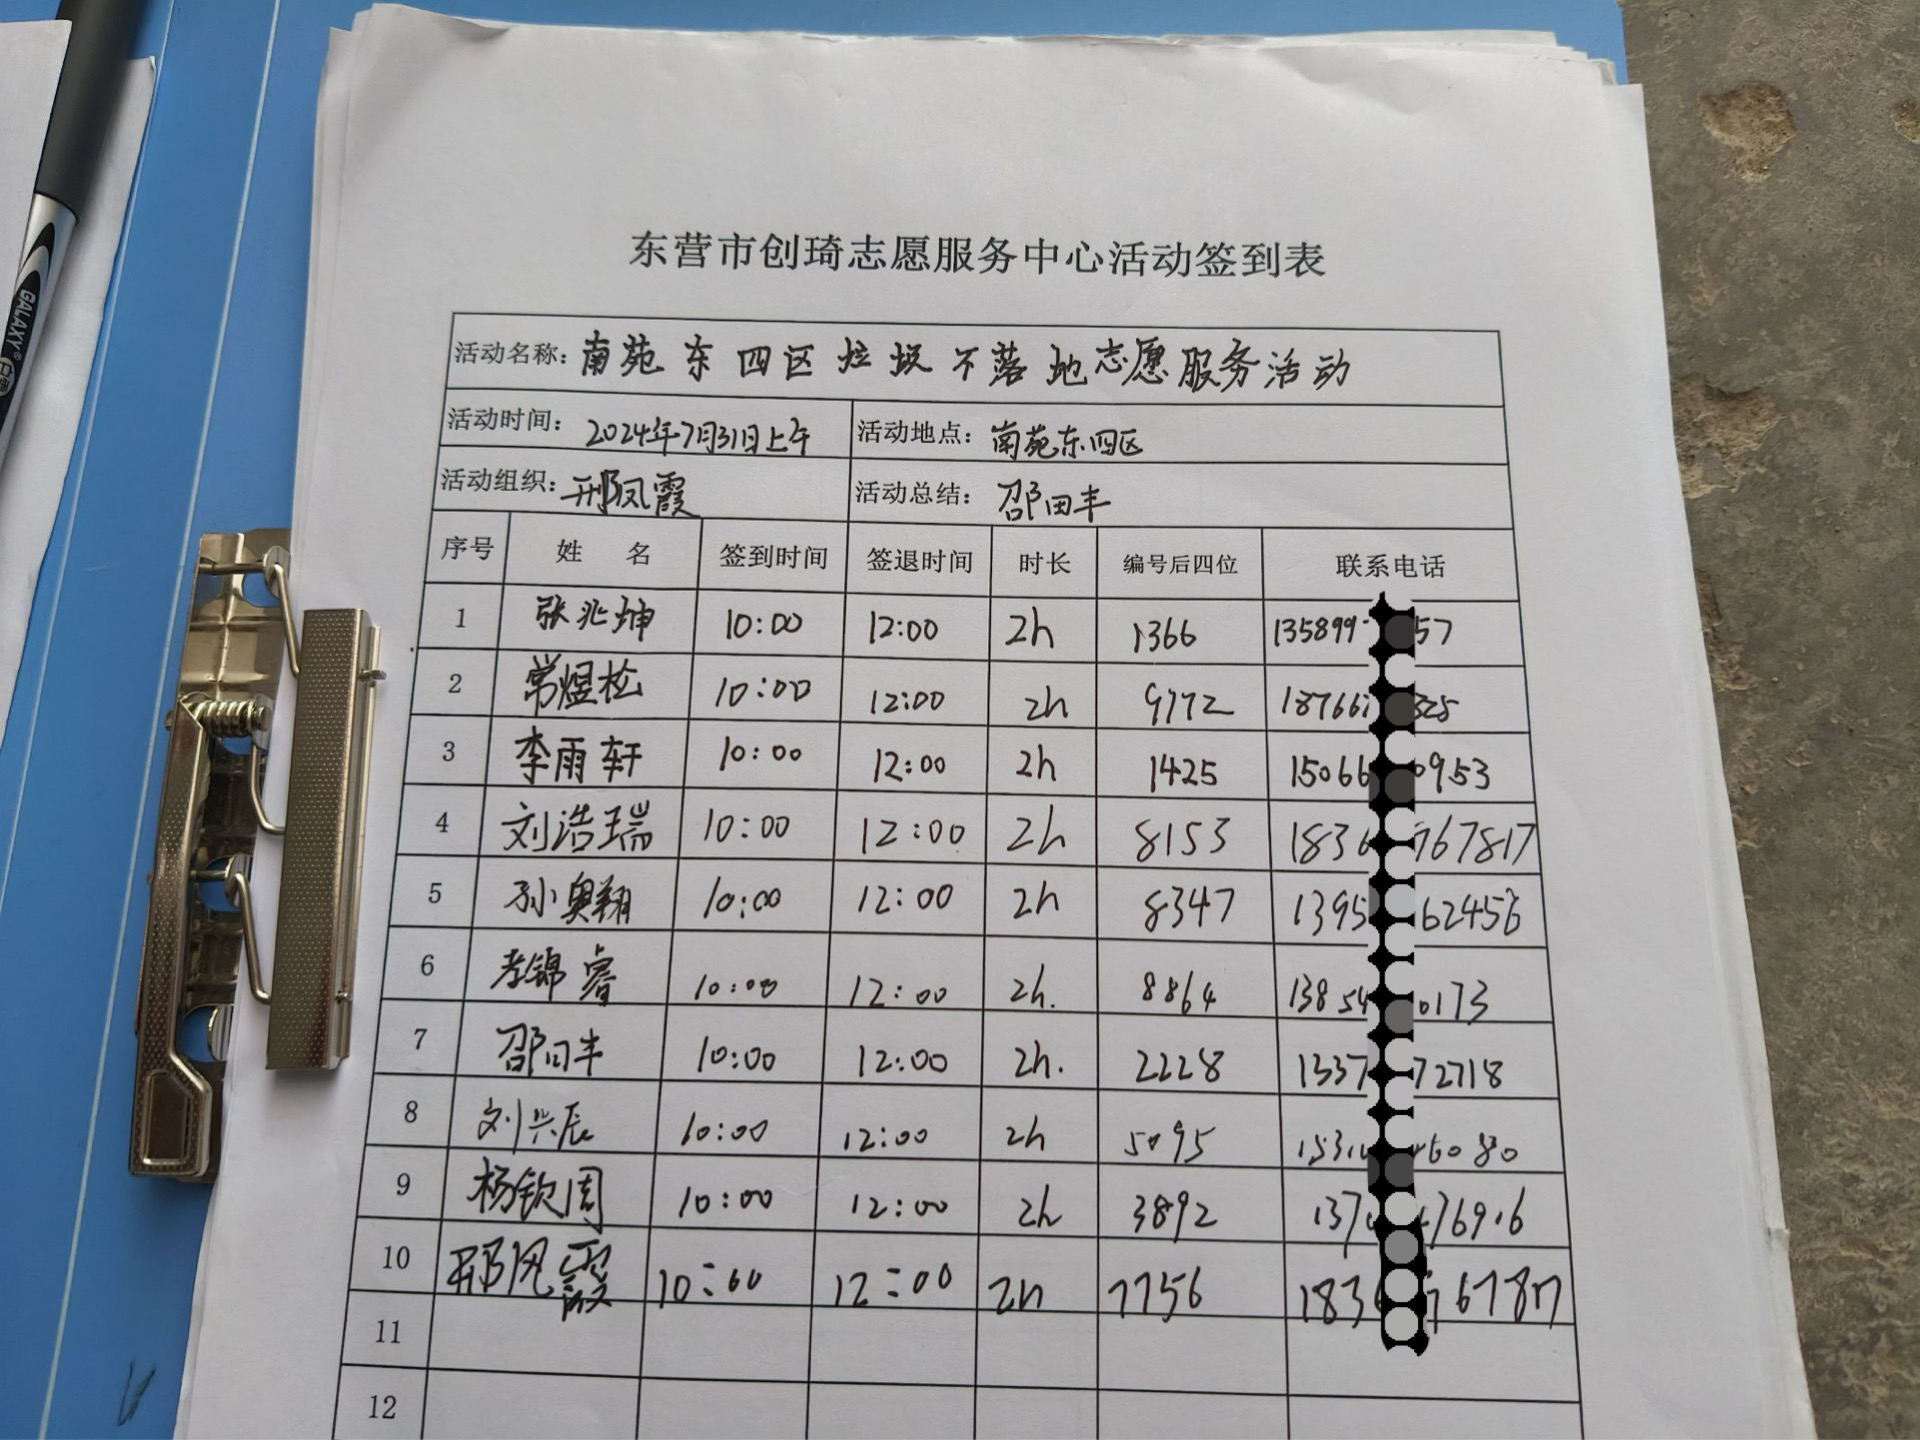 GALAXY
东营市创琦志愿服务中心活动签到表
活动名称：南苑东四区垃圾不落地志愿服务活动
活动时间：2024年7月31日上午 活动地点：南苑东四区
活动组织：邢凤霞 活动总结：邵田丰
序号 姓名 签到时间 签退时间 时长 编号后四位 联系电话
1 张兆坤 10:00 12:00 2h 1366 135899 57
2 常煜松 10:00 12:00 2h 9772 18766
3 李雨轩 10:00 12:00 2h 1425 15066 0953
4 刘浩瑞 10:00 12:00 2h 8153 1836 767817
5 孙奥翔 10:00 12:00 2h 8347 1395 62456
6 李锦睿 10:00 12:00 2h. 8864 13854 0173
7 邵田丰 10:00 12:00 2h. 2228 1337 72718
8 刘兴辰 10:00 12:00 2h 5095 1531 6080
9 杨钦周 10:00 12:00 2h 3892 137 76916
10 邢凤霞 10:00 12:00 2h 7756 1836 67817
11
12